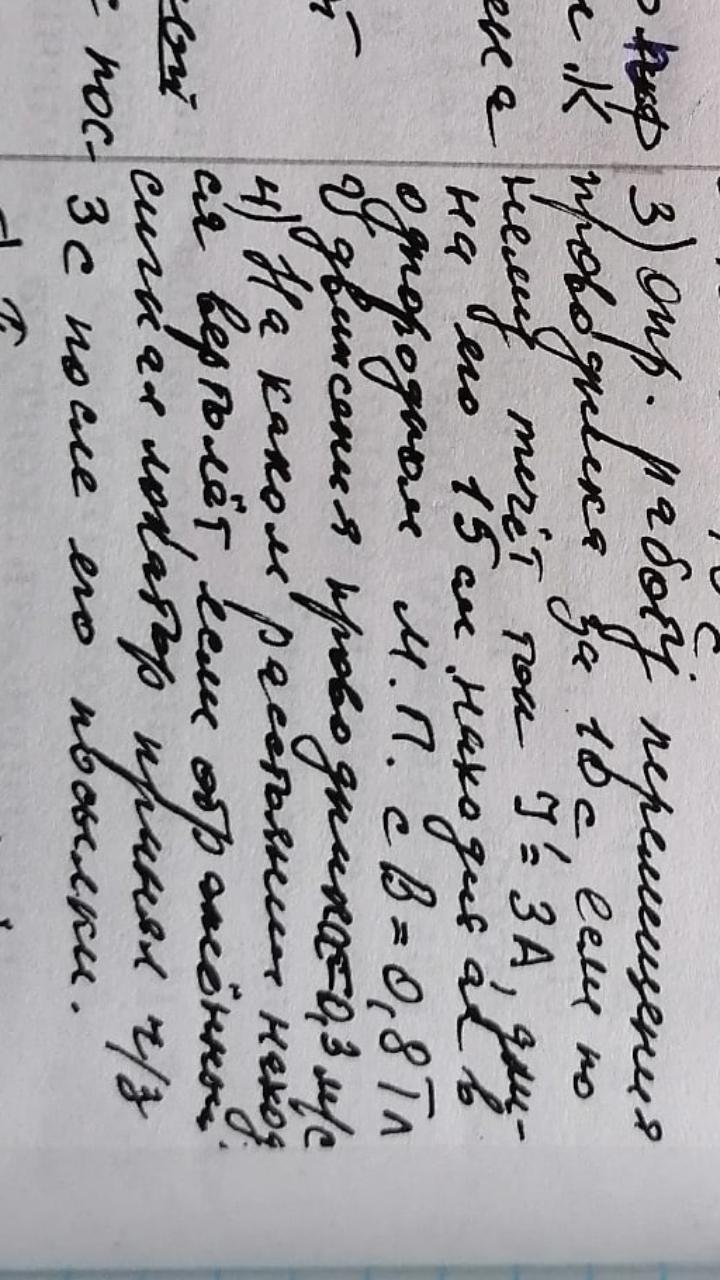 3) Опр. работу перемещения
проводника за 10 с, если по
нему течёт ток I = 3А, дли-
на его 15 см, находится в
однородном м.п. с B = 0,8 Тл
движения проводника 0,3 м/с
4) На каком расстоянии наход.
ся вертолёт, если отражённый
сигнал локатор принял ч/з
3 с после его посылки.